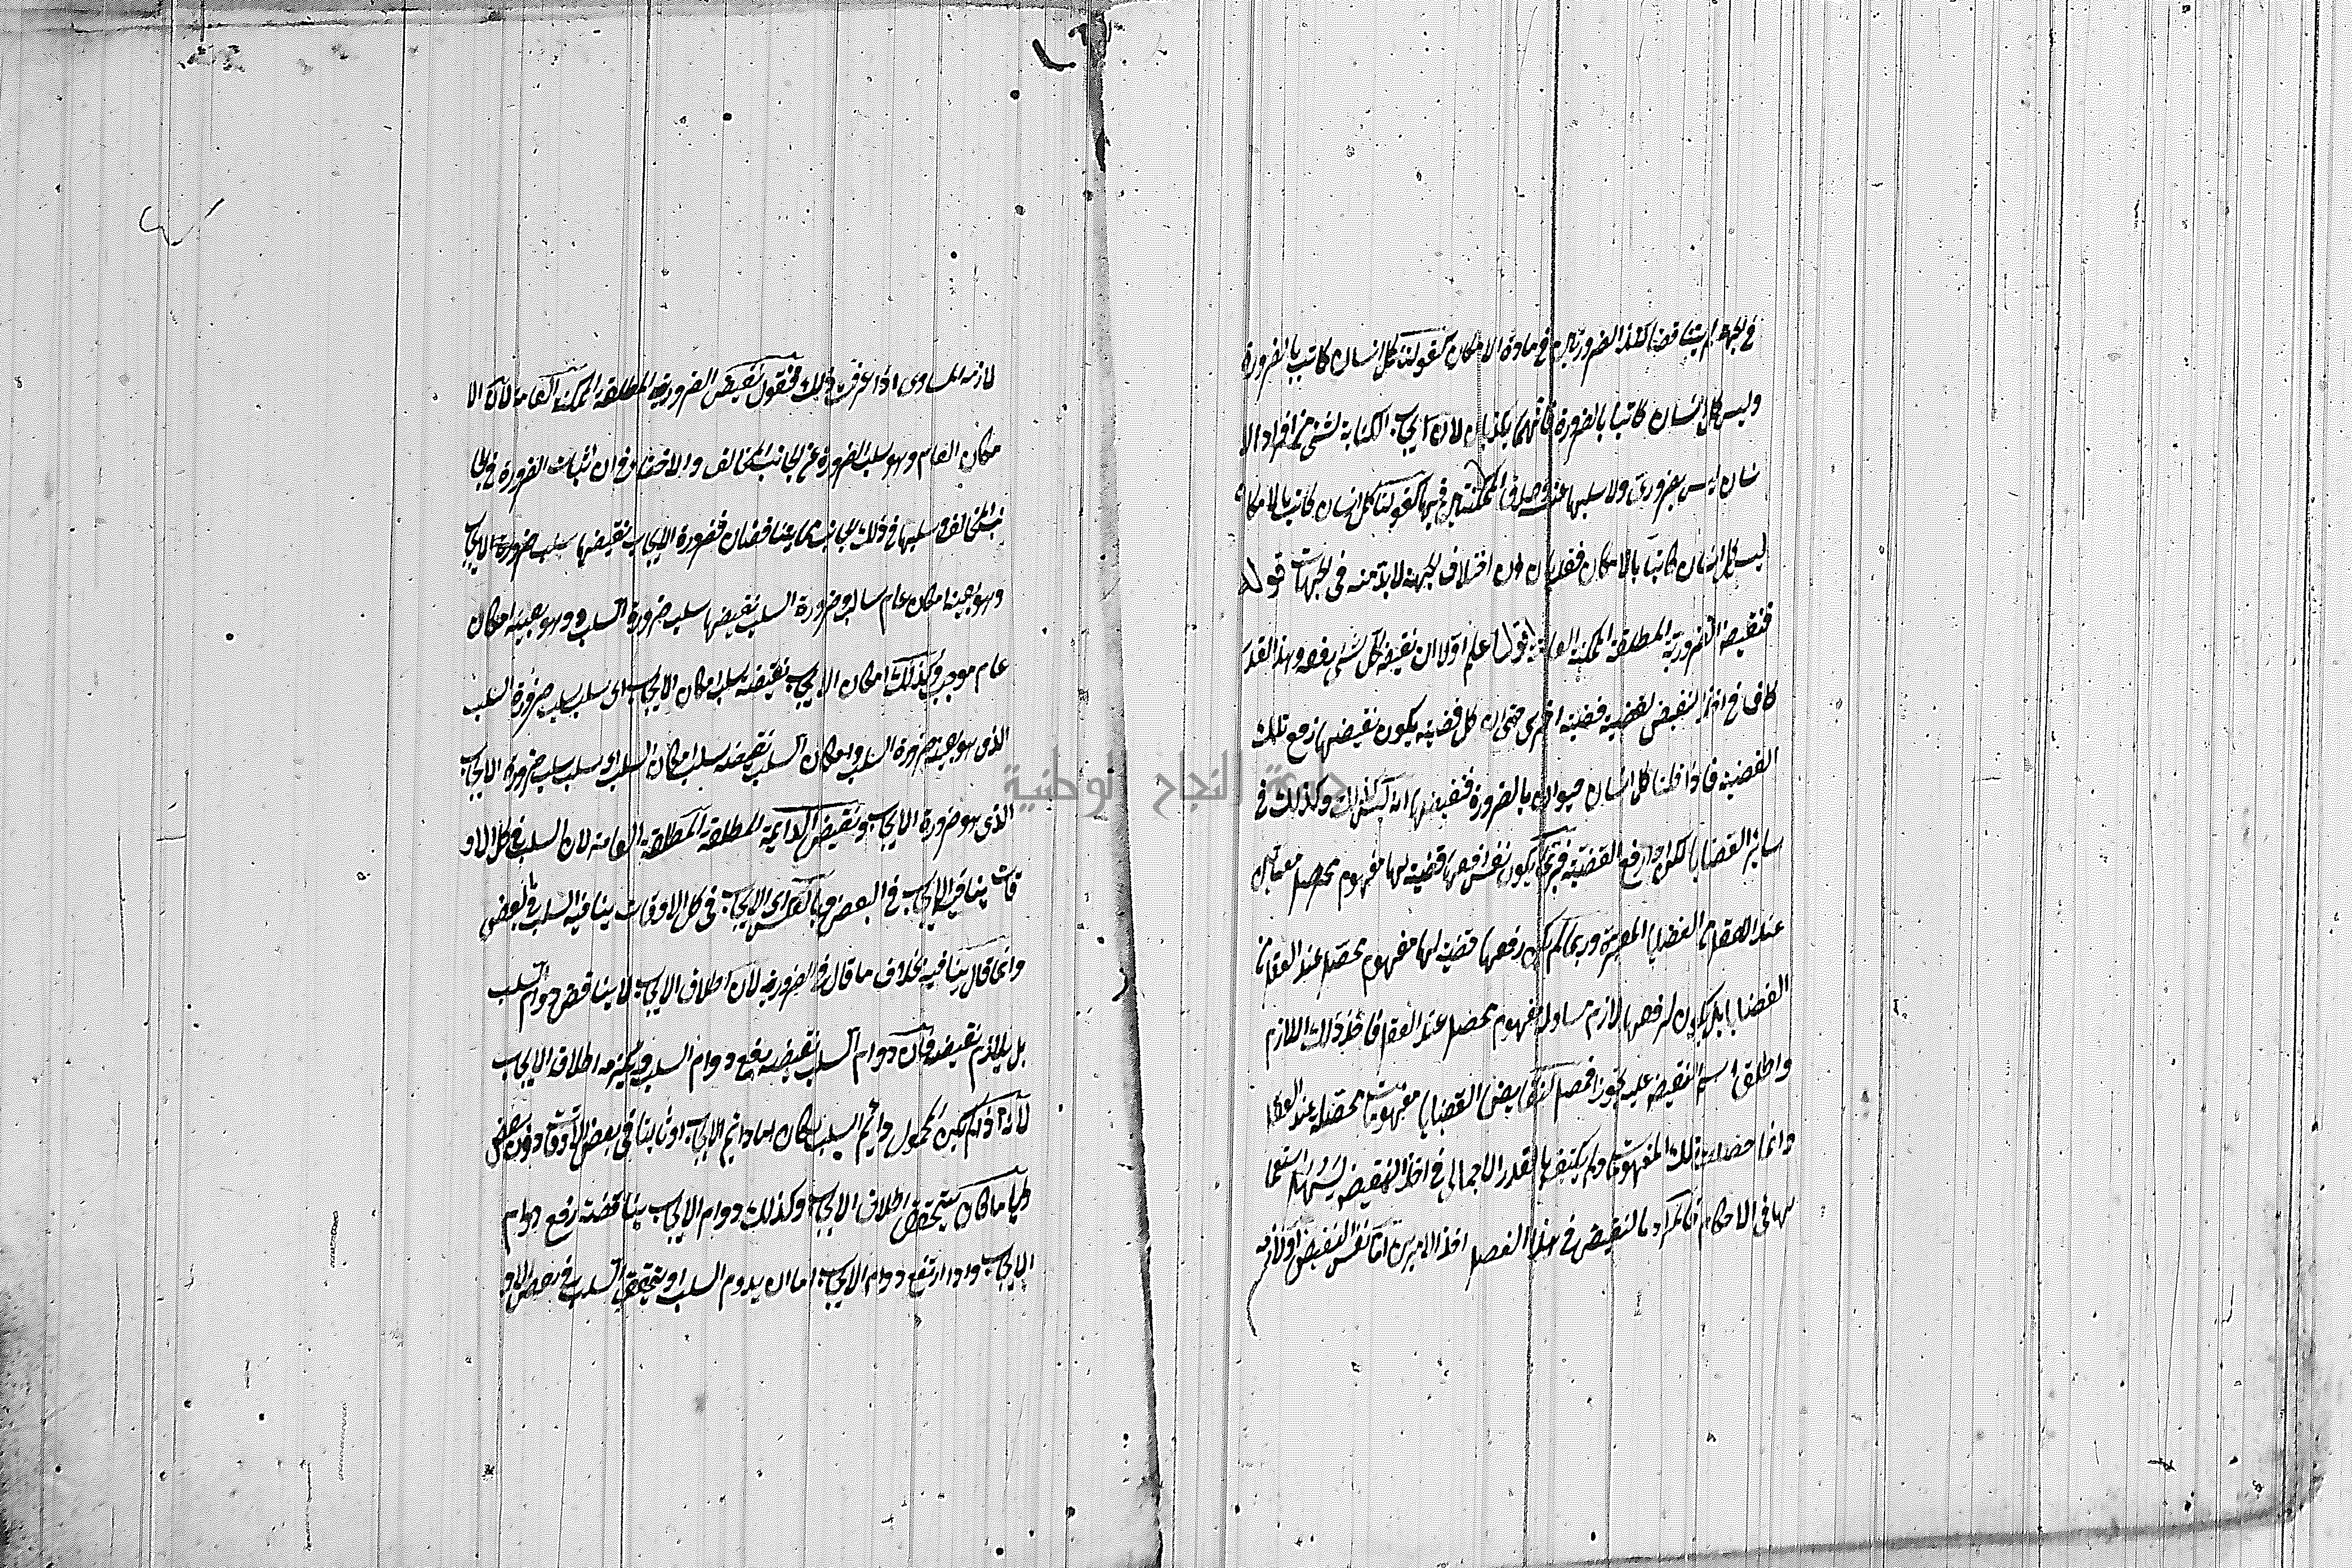 في الجهة لم يتناقضا كصدق الضروريتين في مادة الامكان كقولنا كل انسان كاتب بالضرورة
وليس كل انسان كاتبا بالضرورة فانهما يكذبان لان ايجاب الكتابة لشئ من افراد الا
نسان ليس بضروري ولا سلبها عنه وصدق الممكنتين فيها كقولنا كل انسان كاتب بالامكان
ليس كل انسان كاتبا بالامكان فقد بان ان اختلاف الجهة لا بد منه في الجهات قوله
فنقيض الضرورية المطلقة الممكنة العامة اقول اعلم اولا ان نقيض كل شئ رفعه وهذا القدر
كاف في اخذ النقيض لقضية قضية اخرى حتى ان كل قضية يكون نقيضها رفع تلك
القضية فاذا قلنا كل انسان حيوان بالضرورة فنقيضها انه ليس كذلك وكذلك في
سائر القضايا لكن اذا رفع القضية فربما يكون نفس رفعها قضية لها مفهوم محصل معين
عند العقل من القضايا المعتبرة وربما لم يكن رفعها قضية لها مفهوم محصل عند العقل من
القضايا بل يكون لرفعها لازم مساو له مفهوم محصل عند العقل فاخذ ذلك اللازم
واطلق اسم النقيض عليه تجوزا فحصل لنقايض القضايا مفهومات محصلة عند العقل
وانما حصلت تلك المفهومات ولم يكتف بالقدر الاجمالي في اخذ النقيض ليسهل استعما
لها في الاحكام فالمراد بالنقيض في هذا الفصل احد الامرين اما نفس النقيض او لازمه
لازمه المساوى اذا عرفت ذلك فنقول نقيض الضرورية المطلقة الممكنة العامة لان الا
مكان العام وهو سلب الضرورة عن الجانب المخالف ولا خفاء في ان اثبات الضرورة في الجا
نب المخالف وسلبها في ذلك الجانب مما يتناقضان فضرورة الايجاب نقيضها سلب ضرورة الايجاب
وهو بعينه امكان عام سالب وضرورة السلب نقيضها سلب ضرورة السلب وهو بعينه امكان
عام موجب وكذلك امكان الايجاب نقيضه سلب امكان الايجاب اى سلب سلب ضرورة السلب
الذى هو بعينه ضرورة السلب وامكان السلب نقيضه سلب امكان السلب اى سلب سلب ضرورة الايجاب
الذى هو ضرورة الايجاب ونقيض الدايمة المطلقة المطلقة العامة لان السلب في كل الاو
قات ينافيه الايجاب في البعض وبالعكس اى الايجاب في كل الاوقات ينافيه السلب في البعض
وانما قال ينافيه بخلاف ما قال في الضرورية لان اطلاق الايجاب لا يناقض دوام السلب
بل يلازم نقيضه فان دوام السلب نقيضه رفع دوام السلب ويلزمه اطلاق الايجاب
لانه اذا لم يكن المحمول دائم السلب لكان اما دائم الايجاب او ثابتا في بعض الاوقات دون بعض
وايا ما كان يتحقق اطلاق الايجاب وكذلك دوام الايجاب يناقضه رفع دوام
الايجاب واذا ارتفع دوام الايجاب اما ان يدوم السلب او يتحقق السلب في بعض الاو
جامعة النجاح الوطنية